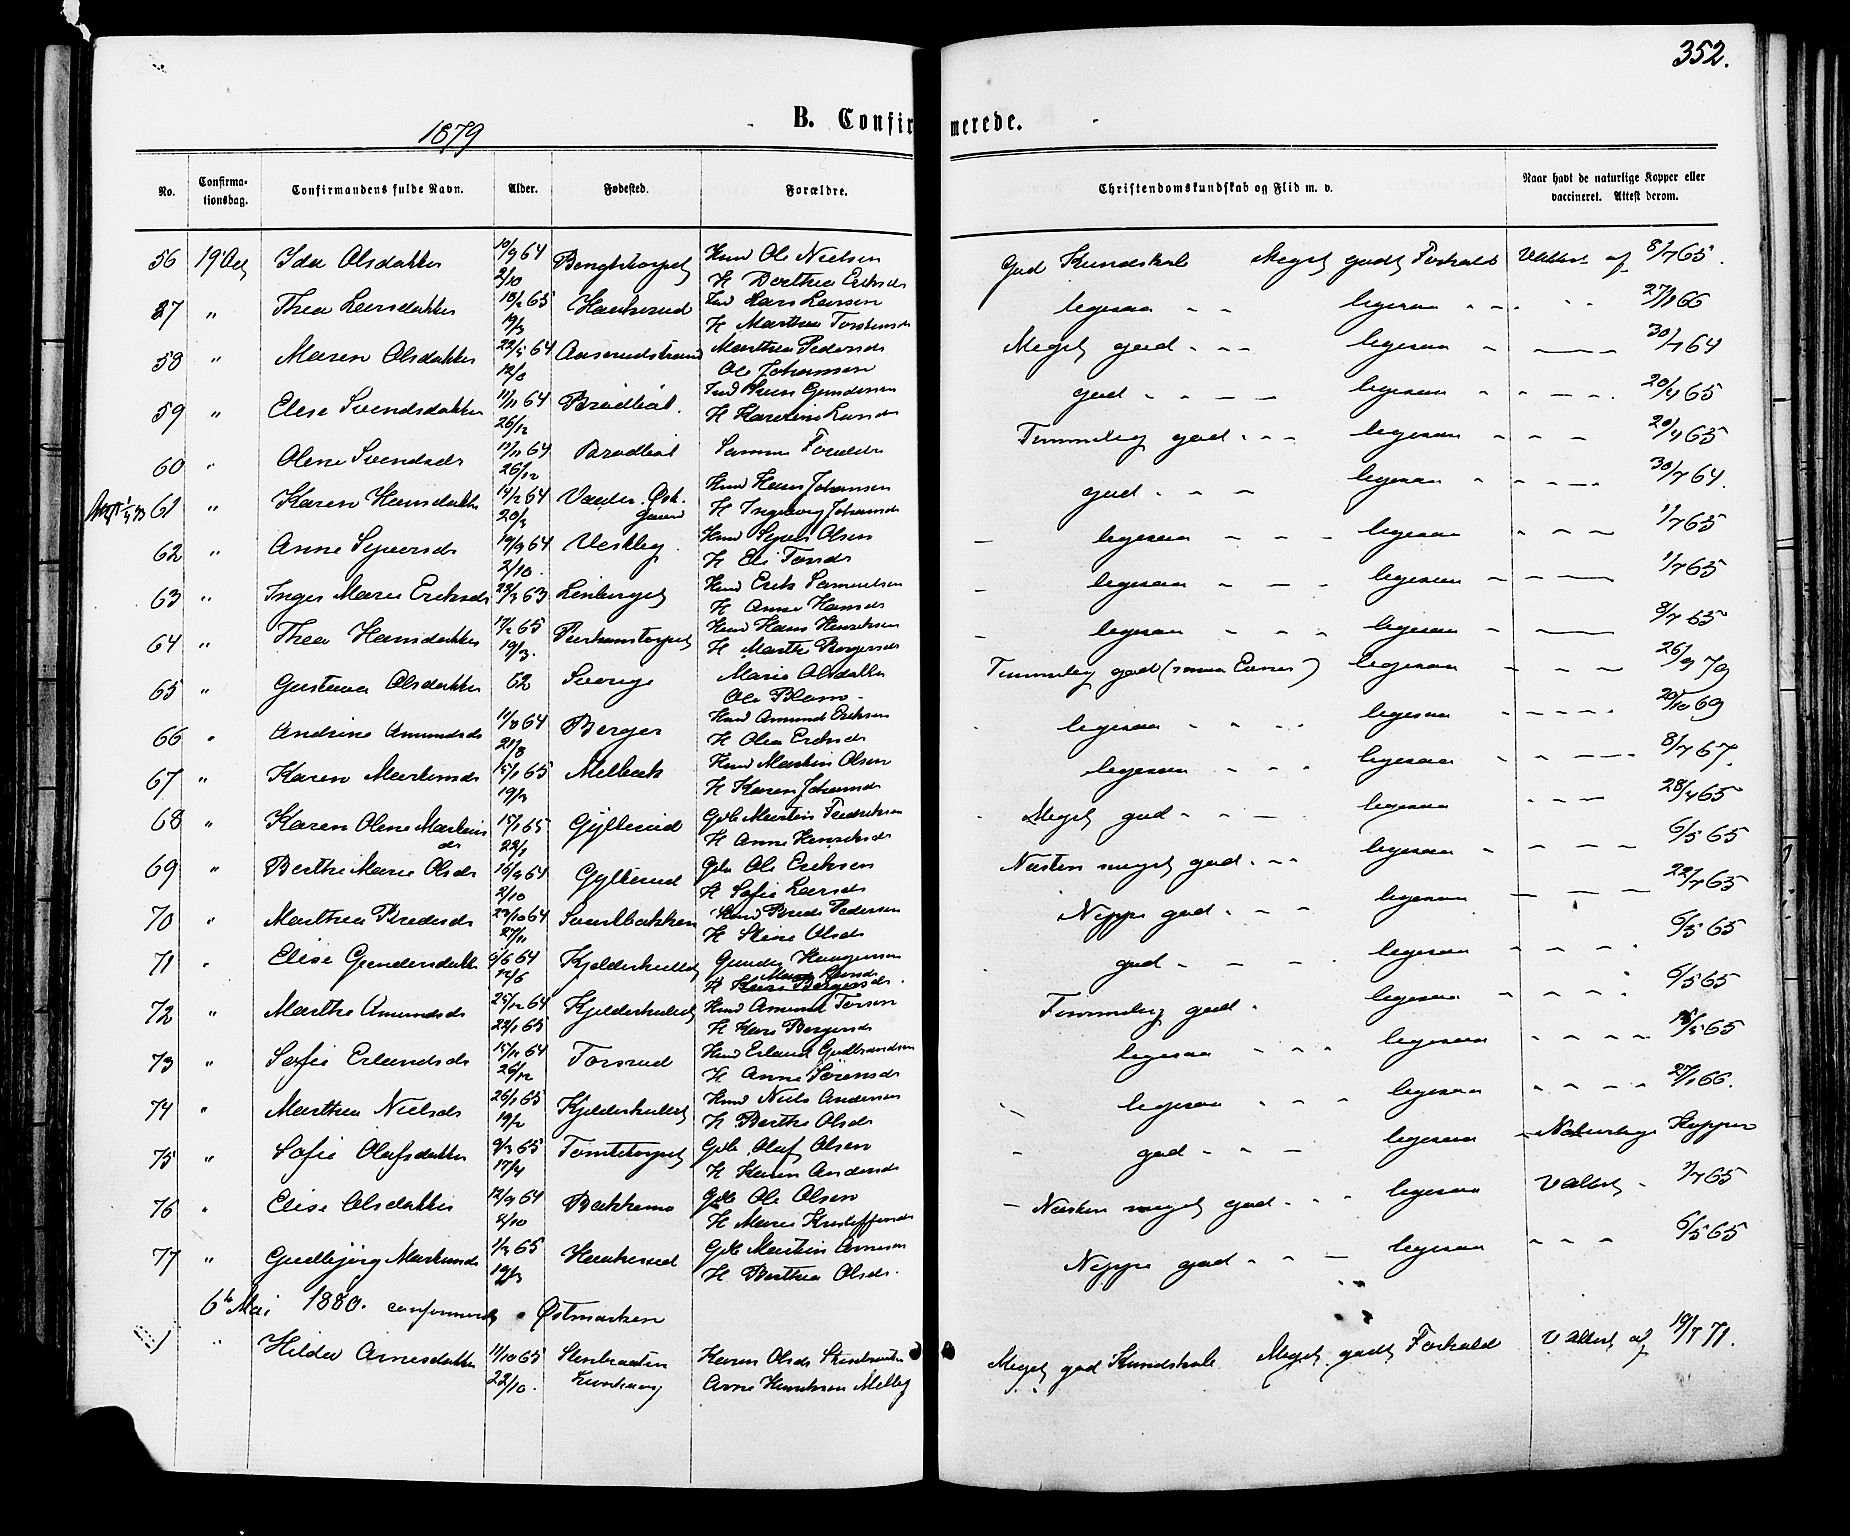 352.
1879
B. Confirmerede.
No. Confirmationsdag. Confirmandens fulde Navn. Alder. Fødested. Forældre. Christendomskundskab og Flid m. v. Naar havt de naturlige Kopper eller vaccineret. Attest derom.
56 19 Oct Ida Olsdatter 10/9 64 2/10 Ole Nielsen H Berthea Eriksd God Kundskab Meget godt Forhold Vattest af 8/7 65.
57 " Thea Larsdatter 18/2 65 19/3 Haukerud Lars Larsen H Marthea Torstensd legesaa " " legesaa " " " 27/1 66
58 " Maren Olsdatter 22/5 64 Aaserudstrand Marthea Pedersd Ole Johansen Meget god " " legesaa " 30/7 64
59 " Elise Svendsdatter 11/11 64 26/12 Brødbøl. Svend Gundersen H god " " legesaa " " 20/4 65
60 " Olene Svendsd 11/11 64 26/12 Brødbøl Samme Forældre Temmelig god " " legesaa " " 20/4 65
61 " Karen Hansdatter 14/2 64 20/3 Hans Johansen H Ingeborg Johansd god " " legesaa " " 30/7 64.
62 " Anne Syversd 19/9 64 2/10. Vestby. Syver Olsen H Eli Torsd legesaa " " legesaa " " 1/7 65
63 " Inger Marie Eriksd 63 Linberget Erik Samuelsen H Anne Hansd legesaa " " legesaa " 1/7 65
64 " Thea Hansdatter 17/2 65 19/3. Hans Henriksen H Marthe Børgersd legesaa " " legesaa " 8/7 65
65 " Gustava Olsdatter 62 Sverige Marie Olsdatter Ole Blom Temmelig god (svage Evner) legesaa " " 26/9 79
66 " Andrine Amundsd 11/8 64 21/8 Berger Amund Eriksen H Olea Eriksd legesaa " " legesaa " " 20/10 69
67 " Karen Martinsd 15/1 65 19/3 Melbæk Martin Olsen H Karen Johansd legesaa " " legesaa " " 8/7 67.
68 " Karen Olene Martinsd 15/1 65 22/1 Gylterud Martin Fredriksen H Anne Henriksd Meget god " " legesaa " " 28/4 65
69 " Berthe Marie Olsd 16/9 64 2/10 Gylterud Ole Eriksen H Sofie Larsd Næsten meget god " " legesaa " " 6/5 65
70 " Marthea Bredesd 64 27/11 Sandbakken Brede Pedersen H Stine Olsd Neppe god " " legesaa " " 22/7 65
71 " Elise Gundersdatter 9/6 64 12/6 Kjelderhullet Gunder Haagensen god " " legesaa " " 6/5 65
72 " Marthe Amundsd 25/12 64 22/1 65 Kjelderhullet Amund Torsen H Kari Børgersd Temmelig god " legesaa " " 6/5 65
73 " Sofie Erlandsd 15/11 64 26/12 Torsrud Erland Gudbrandsen H Anne Sørensd legesaa " " legesaa " " 65
74 " Marthea Nielsd 26/1 65 19/2 Kjelderhullet Niels Andersen H Berthe Olsd legesaa " " legesaa " " 27/1 66.
75 " Sofie Olafsdatter 9/3 65 17/4 Tomtetorpet Olaf Olsen H Karen Andersd god " " legesaa Naturlige Kopper
76 " Elise Olsdatter 12/9 64 2/10 Bakkemo Ole Olsen H Marie Kristoffersd Næsten meget god " " legesaa Vattest " 1/7 65
77 " Gudbjørg Martinsd 1/2 65 19/3 Haukerud Martin Arnesen H Berthea Olsd. Neppe god " " legesaa " " 6/5 65
6te Mai 1880. confirmerede Østmarken
1 " Hilda Arnesdatter 11/10 65 22/10. Stenbraaten Karen Olsd Stenbraaten Arne Henriksen Melby Meget god Kundskab Meget godt Forhold Vattest af 19/7 71.